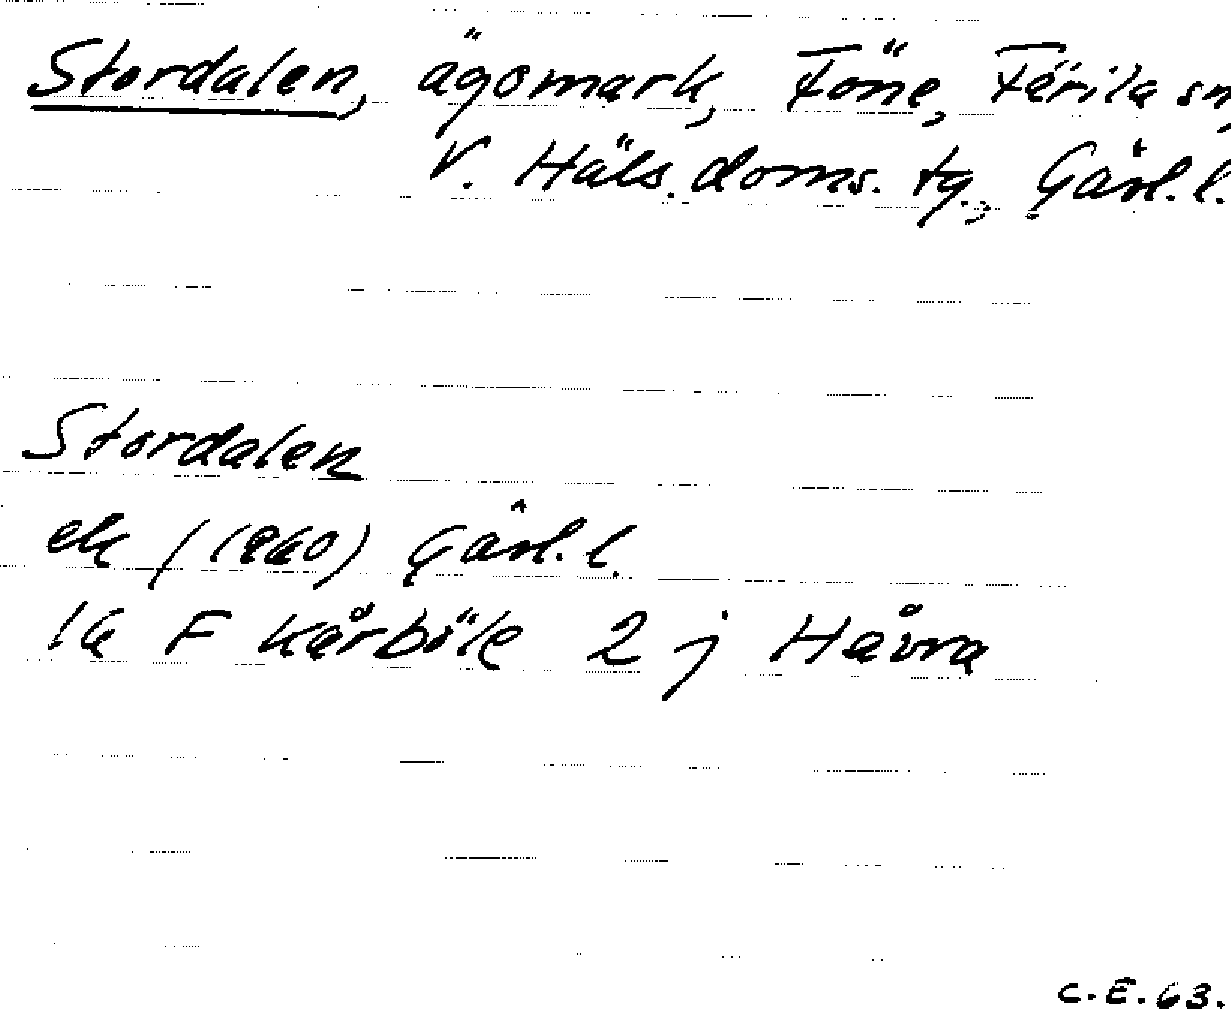 Stordalen, ägomark, Föne, Färila sn,
V. Häls. doms. tg., Gävl. l.
Stordalen
ek (1960) Gävl. l.
16 F Kårböle 2 j Håvra
C.E. 63.